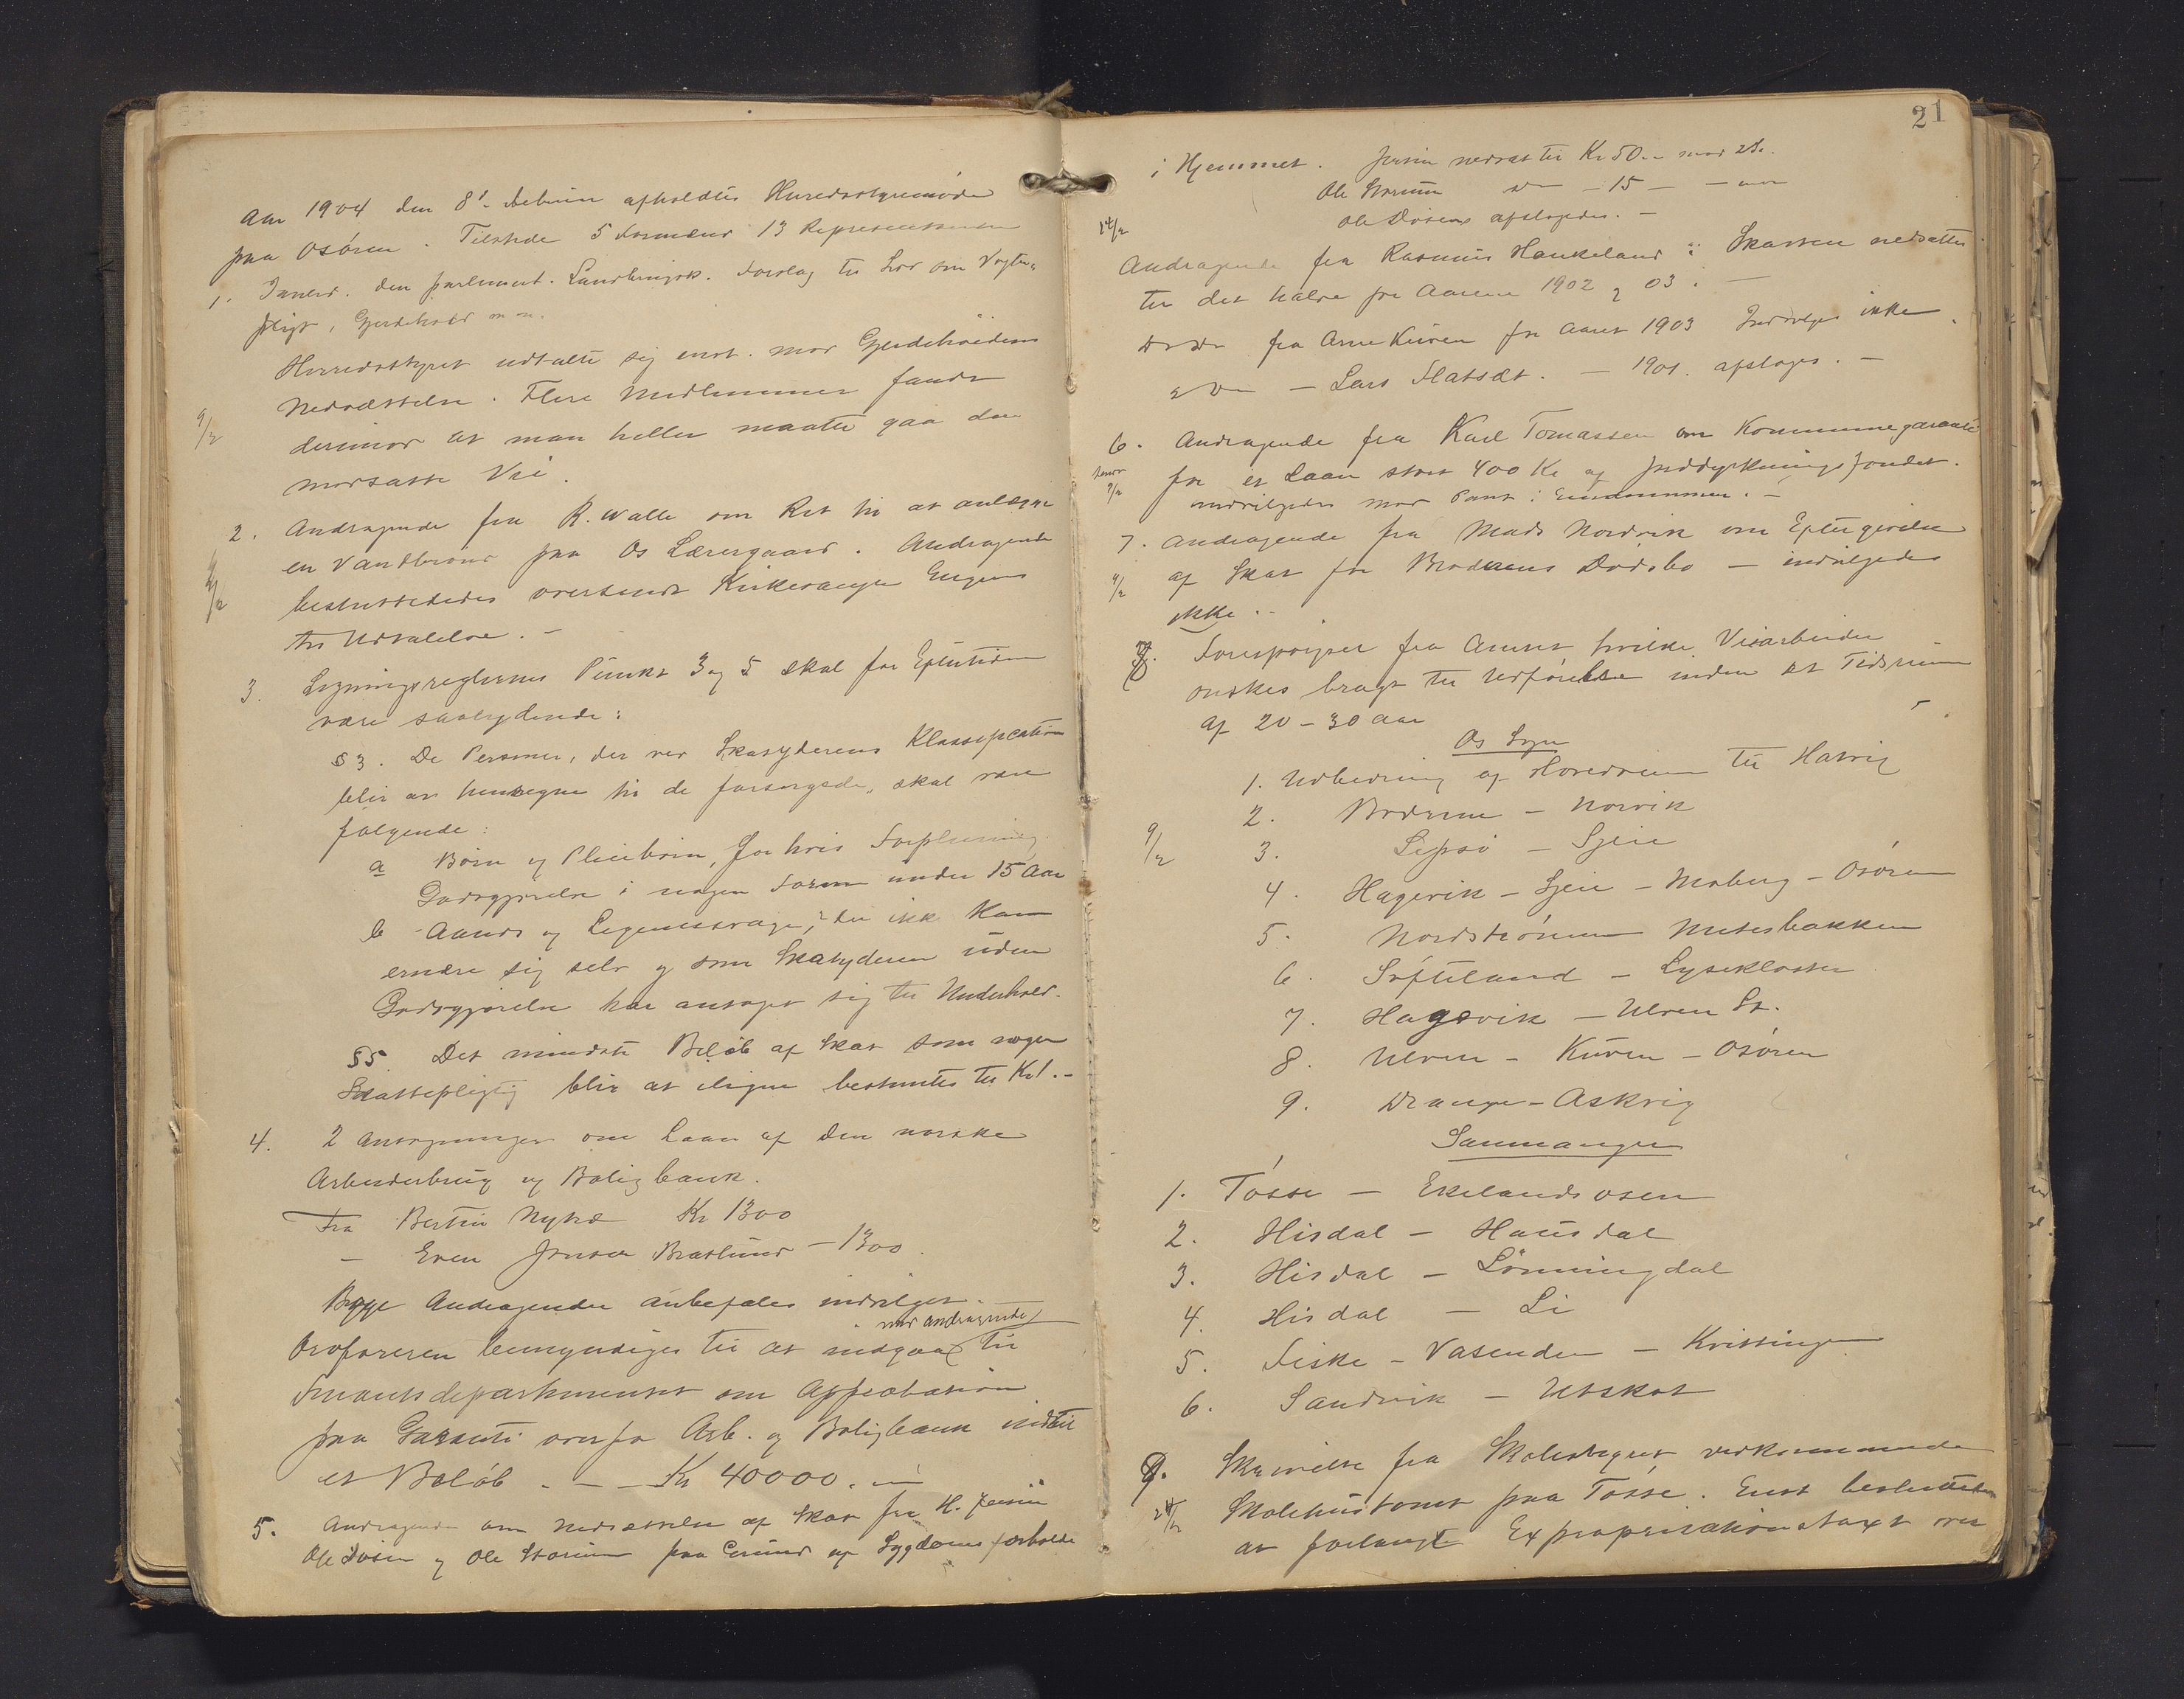 Aar 1904 den 8de Februar afholdtes Herredsstyremøde
paa Osøren. Tilstede 5 Formænd 13 Repræsentanter
1. den parlament. Landbrugsk. Forslag til Lov om Vogter-
pligt, Gjerdehold m. m.
Herredsstyret udtalte sig enst. mod Gjerdehøidens
Nedsættelse. Flere Medlemmer fandt
9/2
derimod at man heller maatte gaa den
modsatte Vei.
2. Andragende fra R. Walle om Ret til at anlægge
en Vandbrønd paa Os Lærergaard. Andragendet
9/2
besluttedes oversendt Kirkeværge
til Udtalelse. -
3. Ligningsreglernes Punkt 3 og 5 skal for Eftertiden
være saalydende:
§ 3. De Personer, der ved Skatyderens Klassifikation
blir at henregne til de forsørgede, skal være
følgende:
a Børn og Pleiebørn, for hvis Forpleining
Godtgjørelse i nogen Form under 15 Aar
b Aands og Legemssvage, der ikke kan
ernære sig selv og som Skatyderen uden
Godtgjørelse har antaget sig til Underhold.
§5 Det mindste Beløb af Skat som nogen
Skattepligtig blir at iligne bestemtes til Kr 1.-
4. 2 Ansøgninger om Laan af den norske
Arbeiderbrug og Boligbank.
Fra Bertin Kr 1300
- Even Jensen - 1300.
Begge Andragender anbefales indvilget.
med andragende
Ordføreren bemyndiges til at indgaa til
Finantsdepartementet om Approbation
paa Garanti overfor Arb. og Boligbank indtil
et Beløb - - - Kr 40000. -
5. Andragende om Nedsættelse af Skat fra H. Jersin
Ole Døsen og Ole Storum paa Grund af Sygdomsforholde
21
i Hjemmet. Jersin nedsat til Kr 50.- mod
Ole Storum - 15 -
Ole Døsens afsloges. -
24/2
Andragende fra Rasmus Haukeland: Skatten nedsættes
til det halve for Aarene 1902 og 03. -
Do Do fra Arne Kuven for Aaret 1903 Indvilges ikke.
- Lars Flatsæt. - 1901. afsloges. -
6. Andragende fra Karl Tomassen om Kommunegaranti
9/2
for et Laan stort 400 Kr af Jorddyrkningsfondet.
indvilgedes mod Pant i Eiendommen. -
7. Andragende fra Mads Nordvik om Eftergivelse
9/2
af Skat for Broderens Dødsbo - indvilgedes
ikke. -
8. Forespørsel fra Amtet hvilke Veiarbeider
ønskes bragt til Udførelse inden et Tidsrum
af 20 - 30 Aar
Os Sogn
1. Udbedring af Hovedveien til Hatvig
2. - Norvik
9/2
3. Lepsø - Sjeie
4. Hagevik - Sjeie - Moberg - Osøren
5. Nordstrønen Mutesbakken
6. Søfteland - Lysekloster
7. Hagevik - Ulven St.
8. Ulven - Kuven - Osøren
9. Drange - Askvig
Samnanger
1. Tøsse - Eikelandsosen
2. Hisdal - Hausdal
3. Hisdal - Lønningdal
4. Hisdal - Li
5. Fiske - Vasenden - Kvittingen
6. Sandvik - Utskot
9. Skrivelse fra Skolestyret vedkommende
24/2
Skolehustomt paa Tøsse. Enst besluttedes
at forlangt Expropriationstaxt over